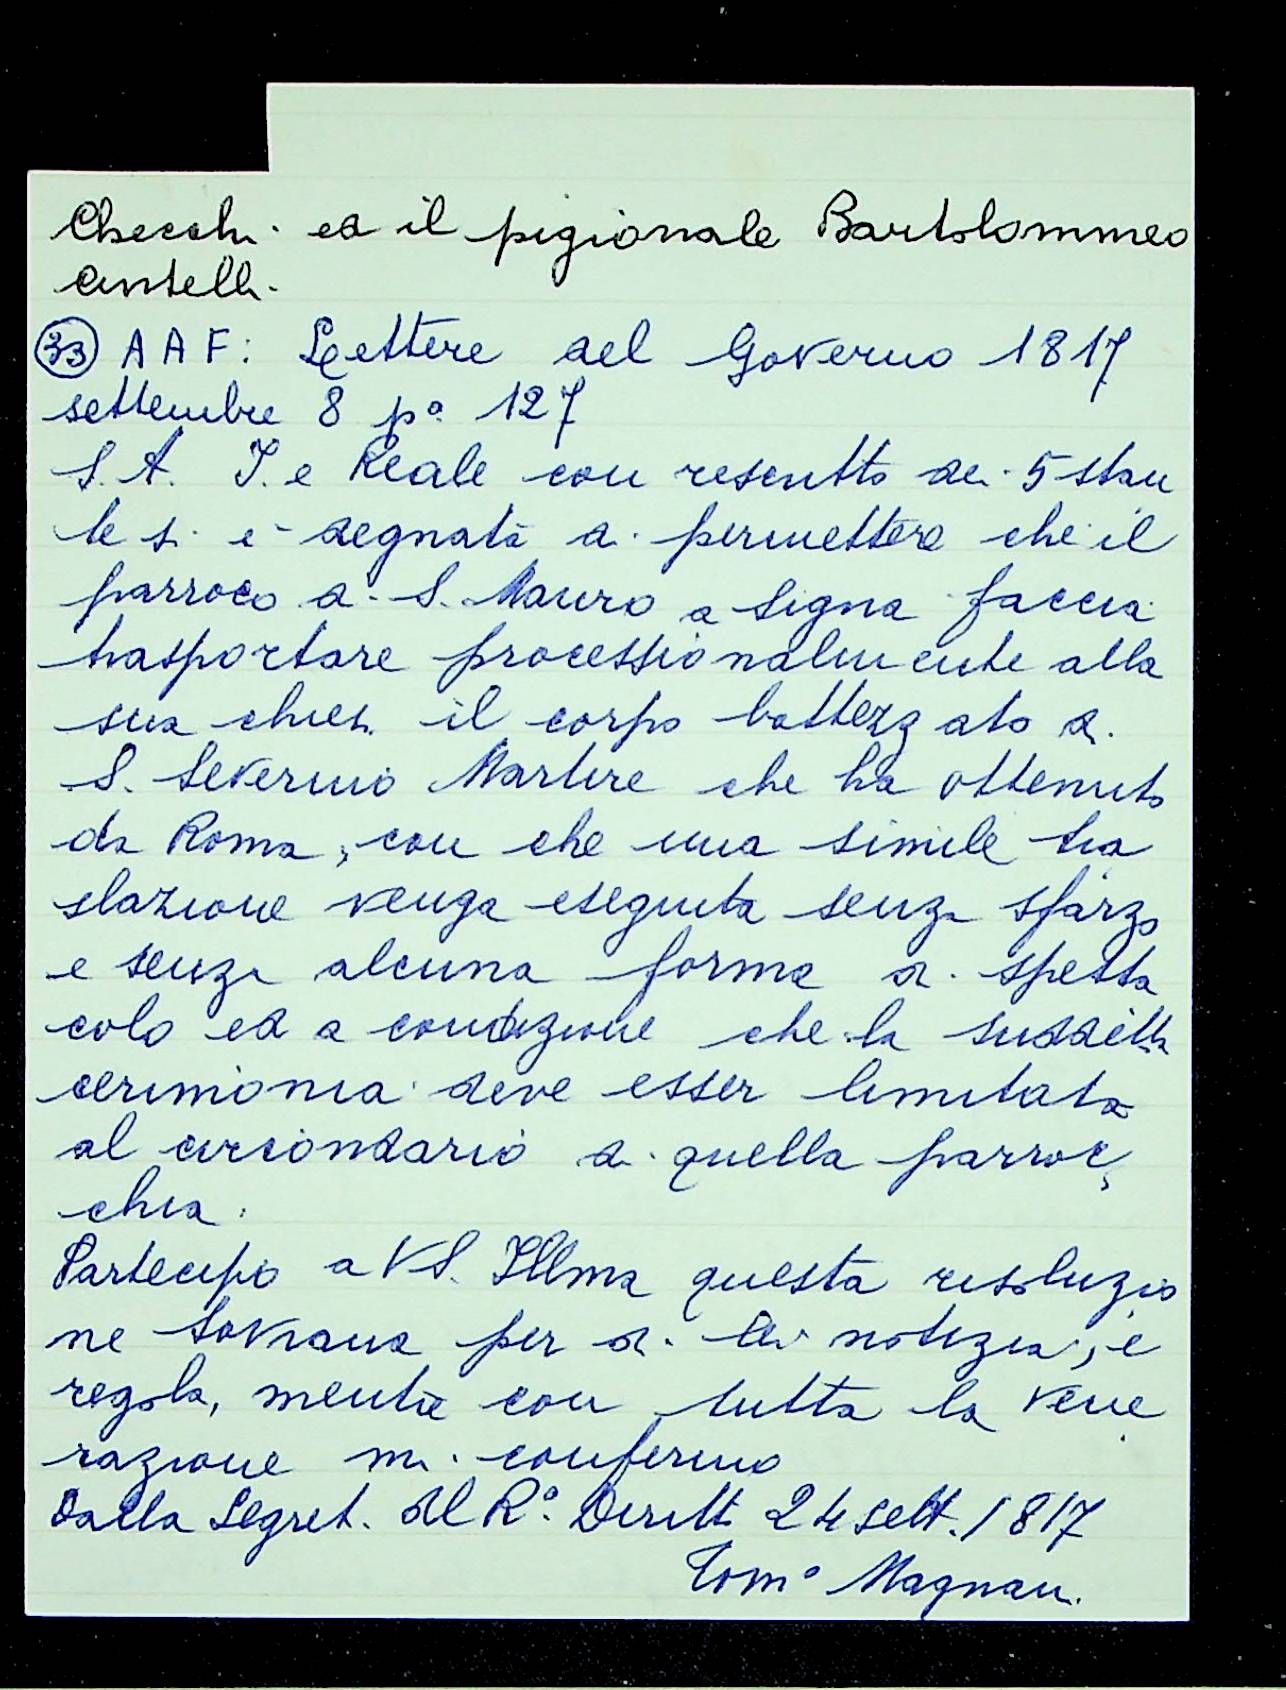 Checchi ed il pigionale Bartolommeo
Cintelli.
33 A A F: Lettere del Governo 1817
settembre 8 pª 127
S. A. I. e Reale con rescritto dei 5 stan
te si è degnata di permettere che il
parroco di S. Mauro a Signa faccia
trasportare processionalmente alla
sua chiesa il corpo battezzato di
S. Severino Martire che ha ottenuto
da Roma, con che una simile tra
slazione venga eseguita senza sfarzo
e senza alcuna forma di spetta
colo ed a condizione che la suddetta
cerimonia deve esser limitata
al circondario di quella parroc,
chia.
Partecipo a VS. Illma questa risoluzio
ne sovrana per di Lei notizia, e
regola, mentre con tutta la vene
razione mi confermo
Dalla Segret. del Rº. Diritto 24 sett. 1817
Tomº Magnani.